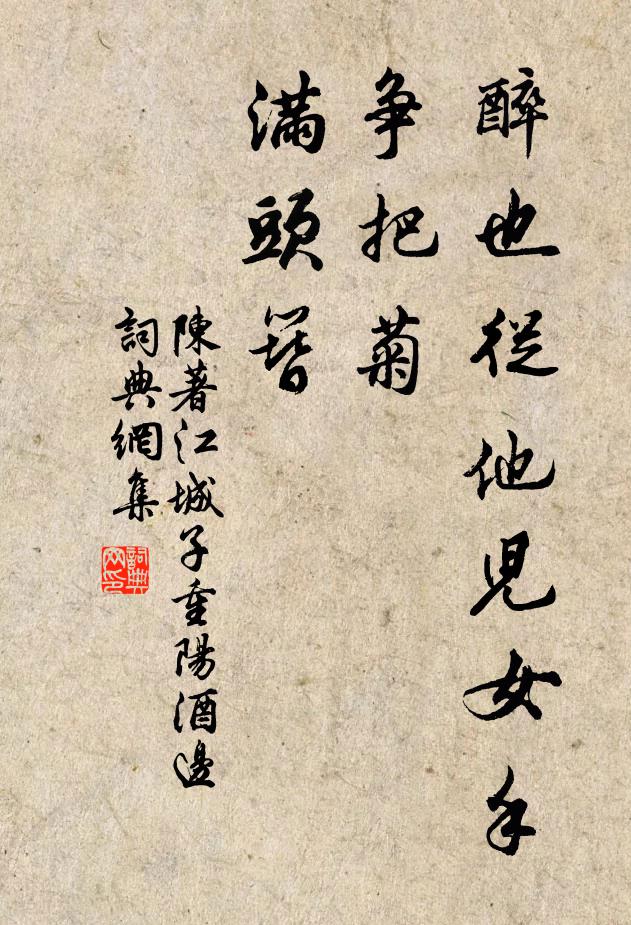 醉也從他兒女手
争把菊
滿頭簪
陳著江城子重陽酒邊
詞典網集
詞典
网印